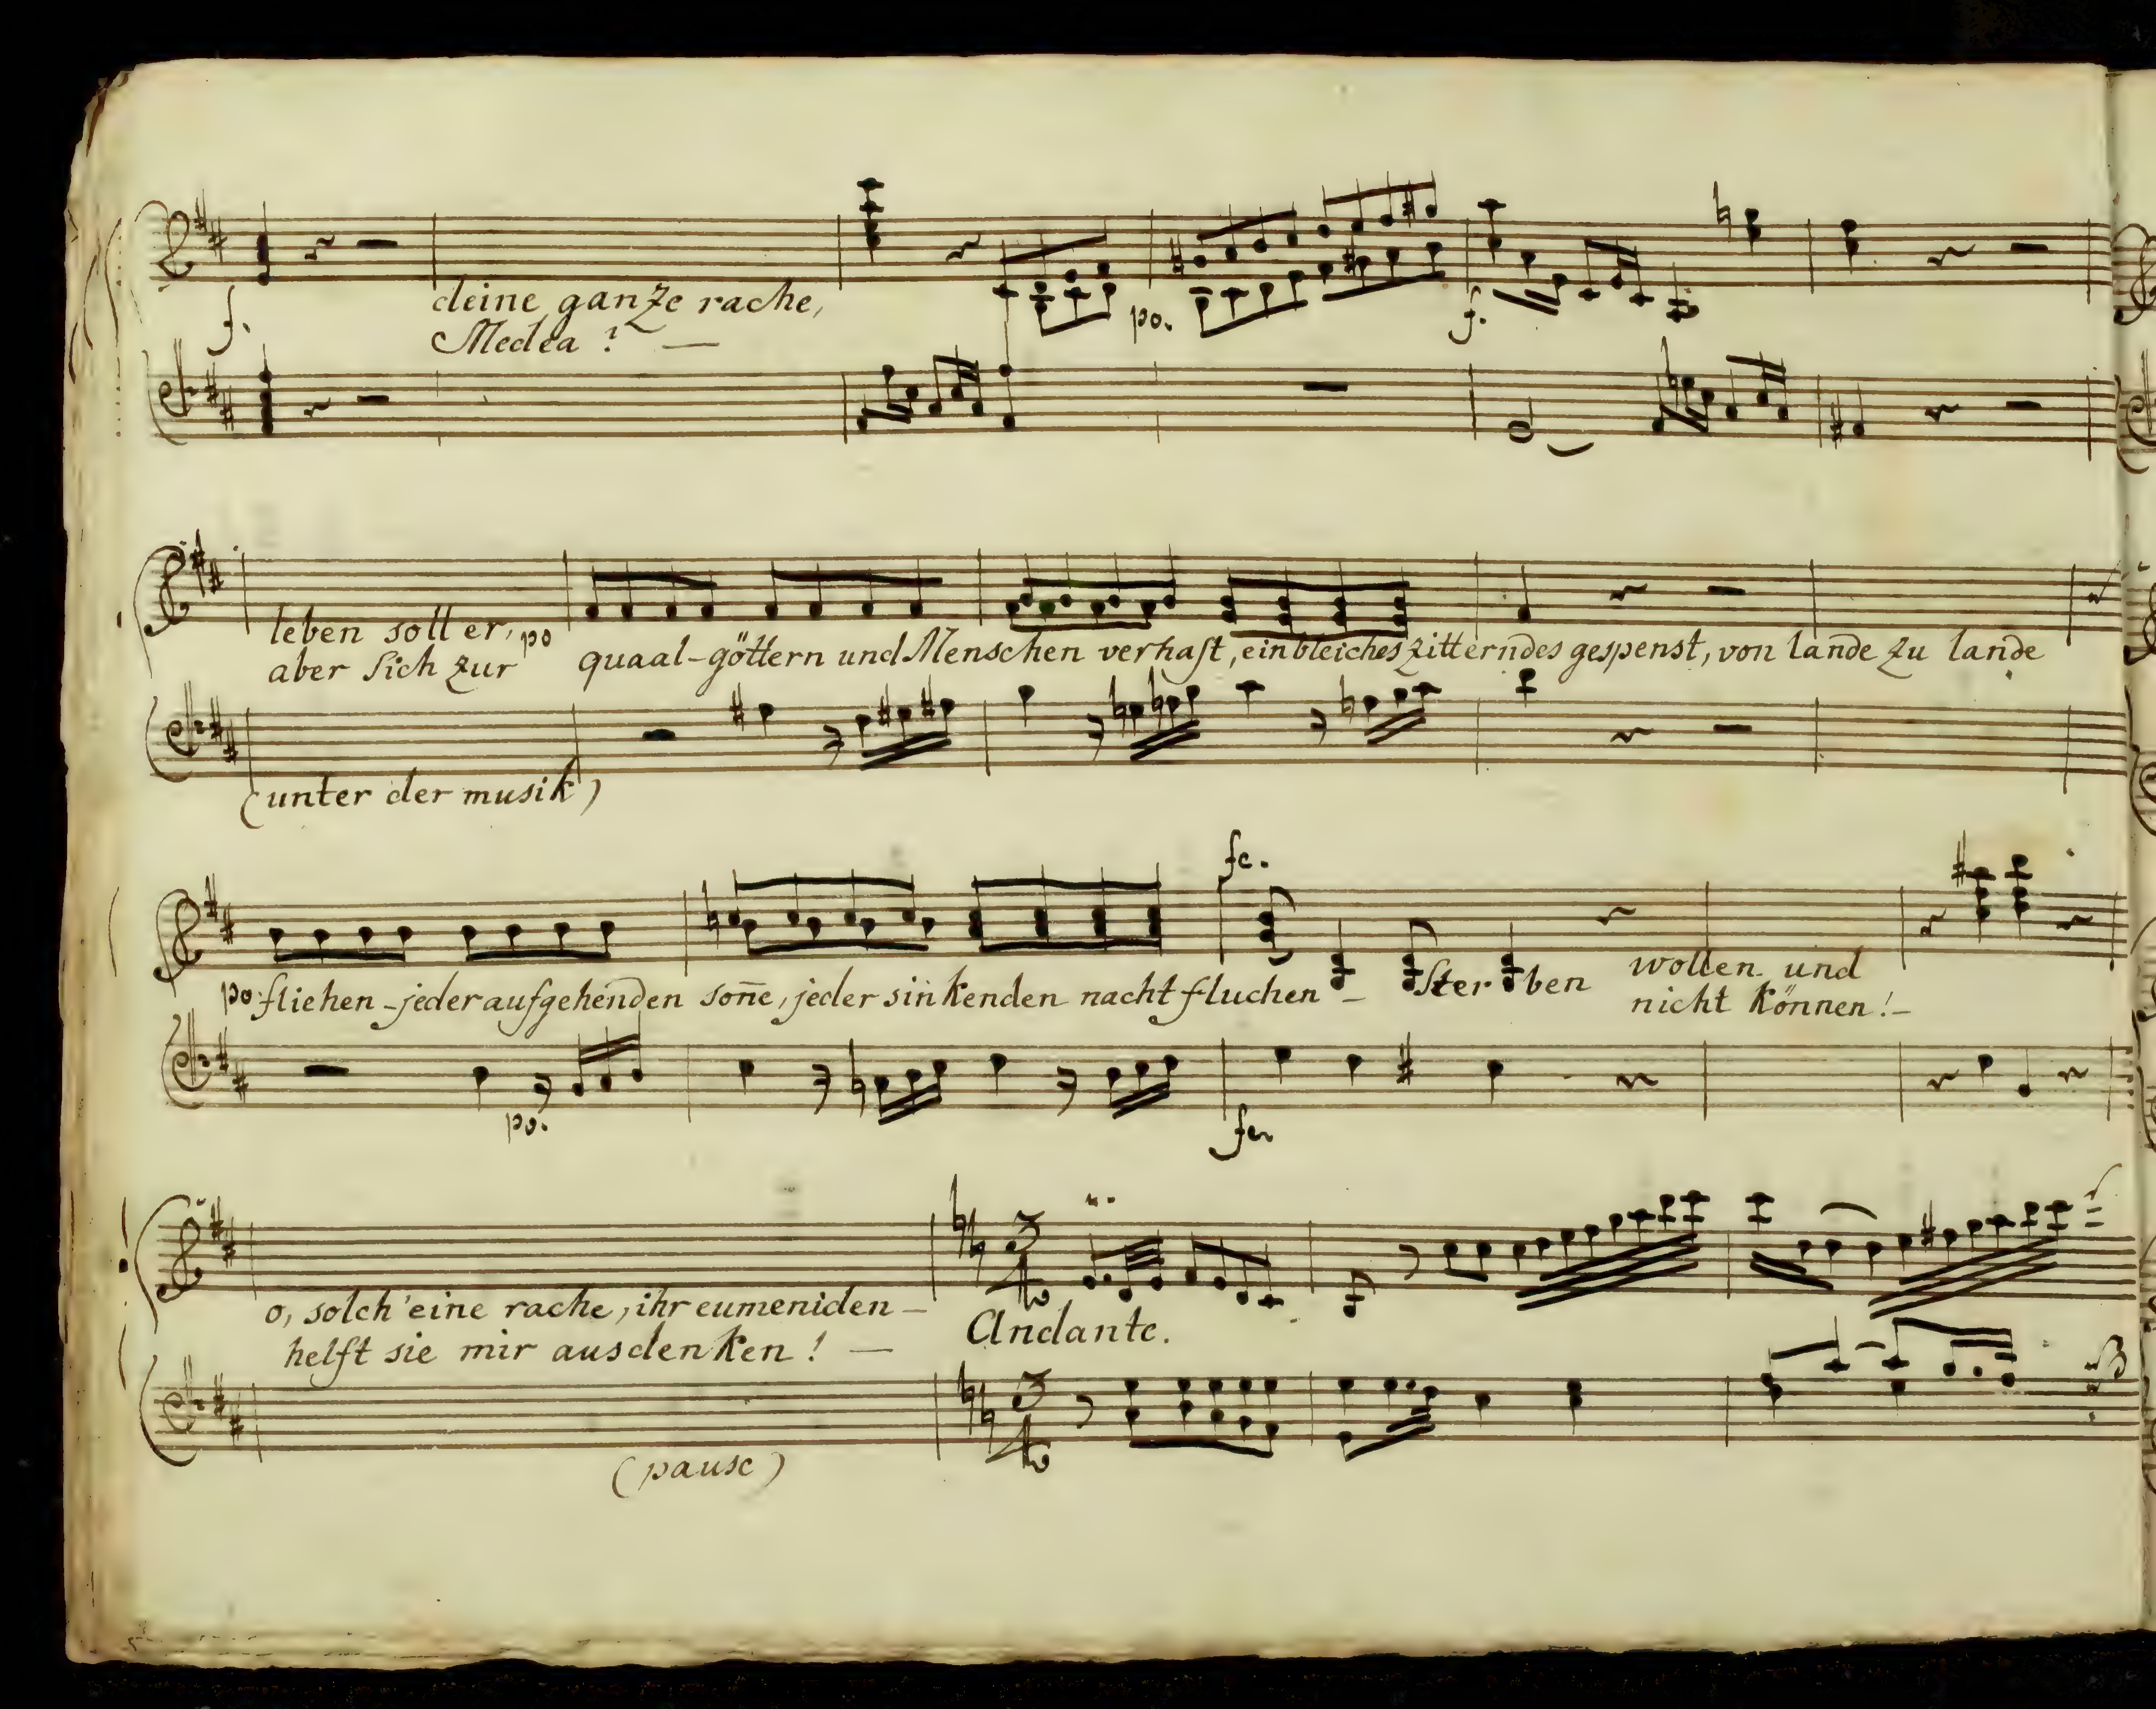 deine ganze rache,
f.
po.
f.
Medea ? —
leben soll er, po
aber sich zur quaal-göttern und Menschen verhast, ein bleiches zitterndes gespenst, von lande zu lande
(unter der musik)
fe.
wollen und
po. fliehen - jeder aufgehenden soñe, jeder sinkenden nacht fluchen – Sterben
nicht können! –
po.
fe.
o, solch' eine rache, ihr eumeniden –
3
4
Andante.
helft sie mir ausdenken! —
3
4
(pause)